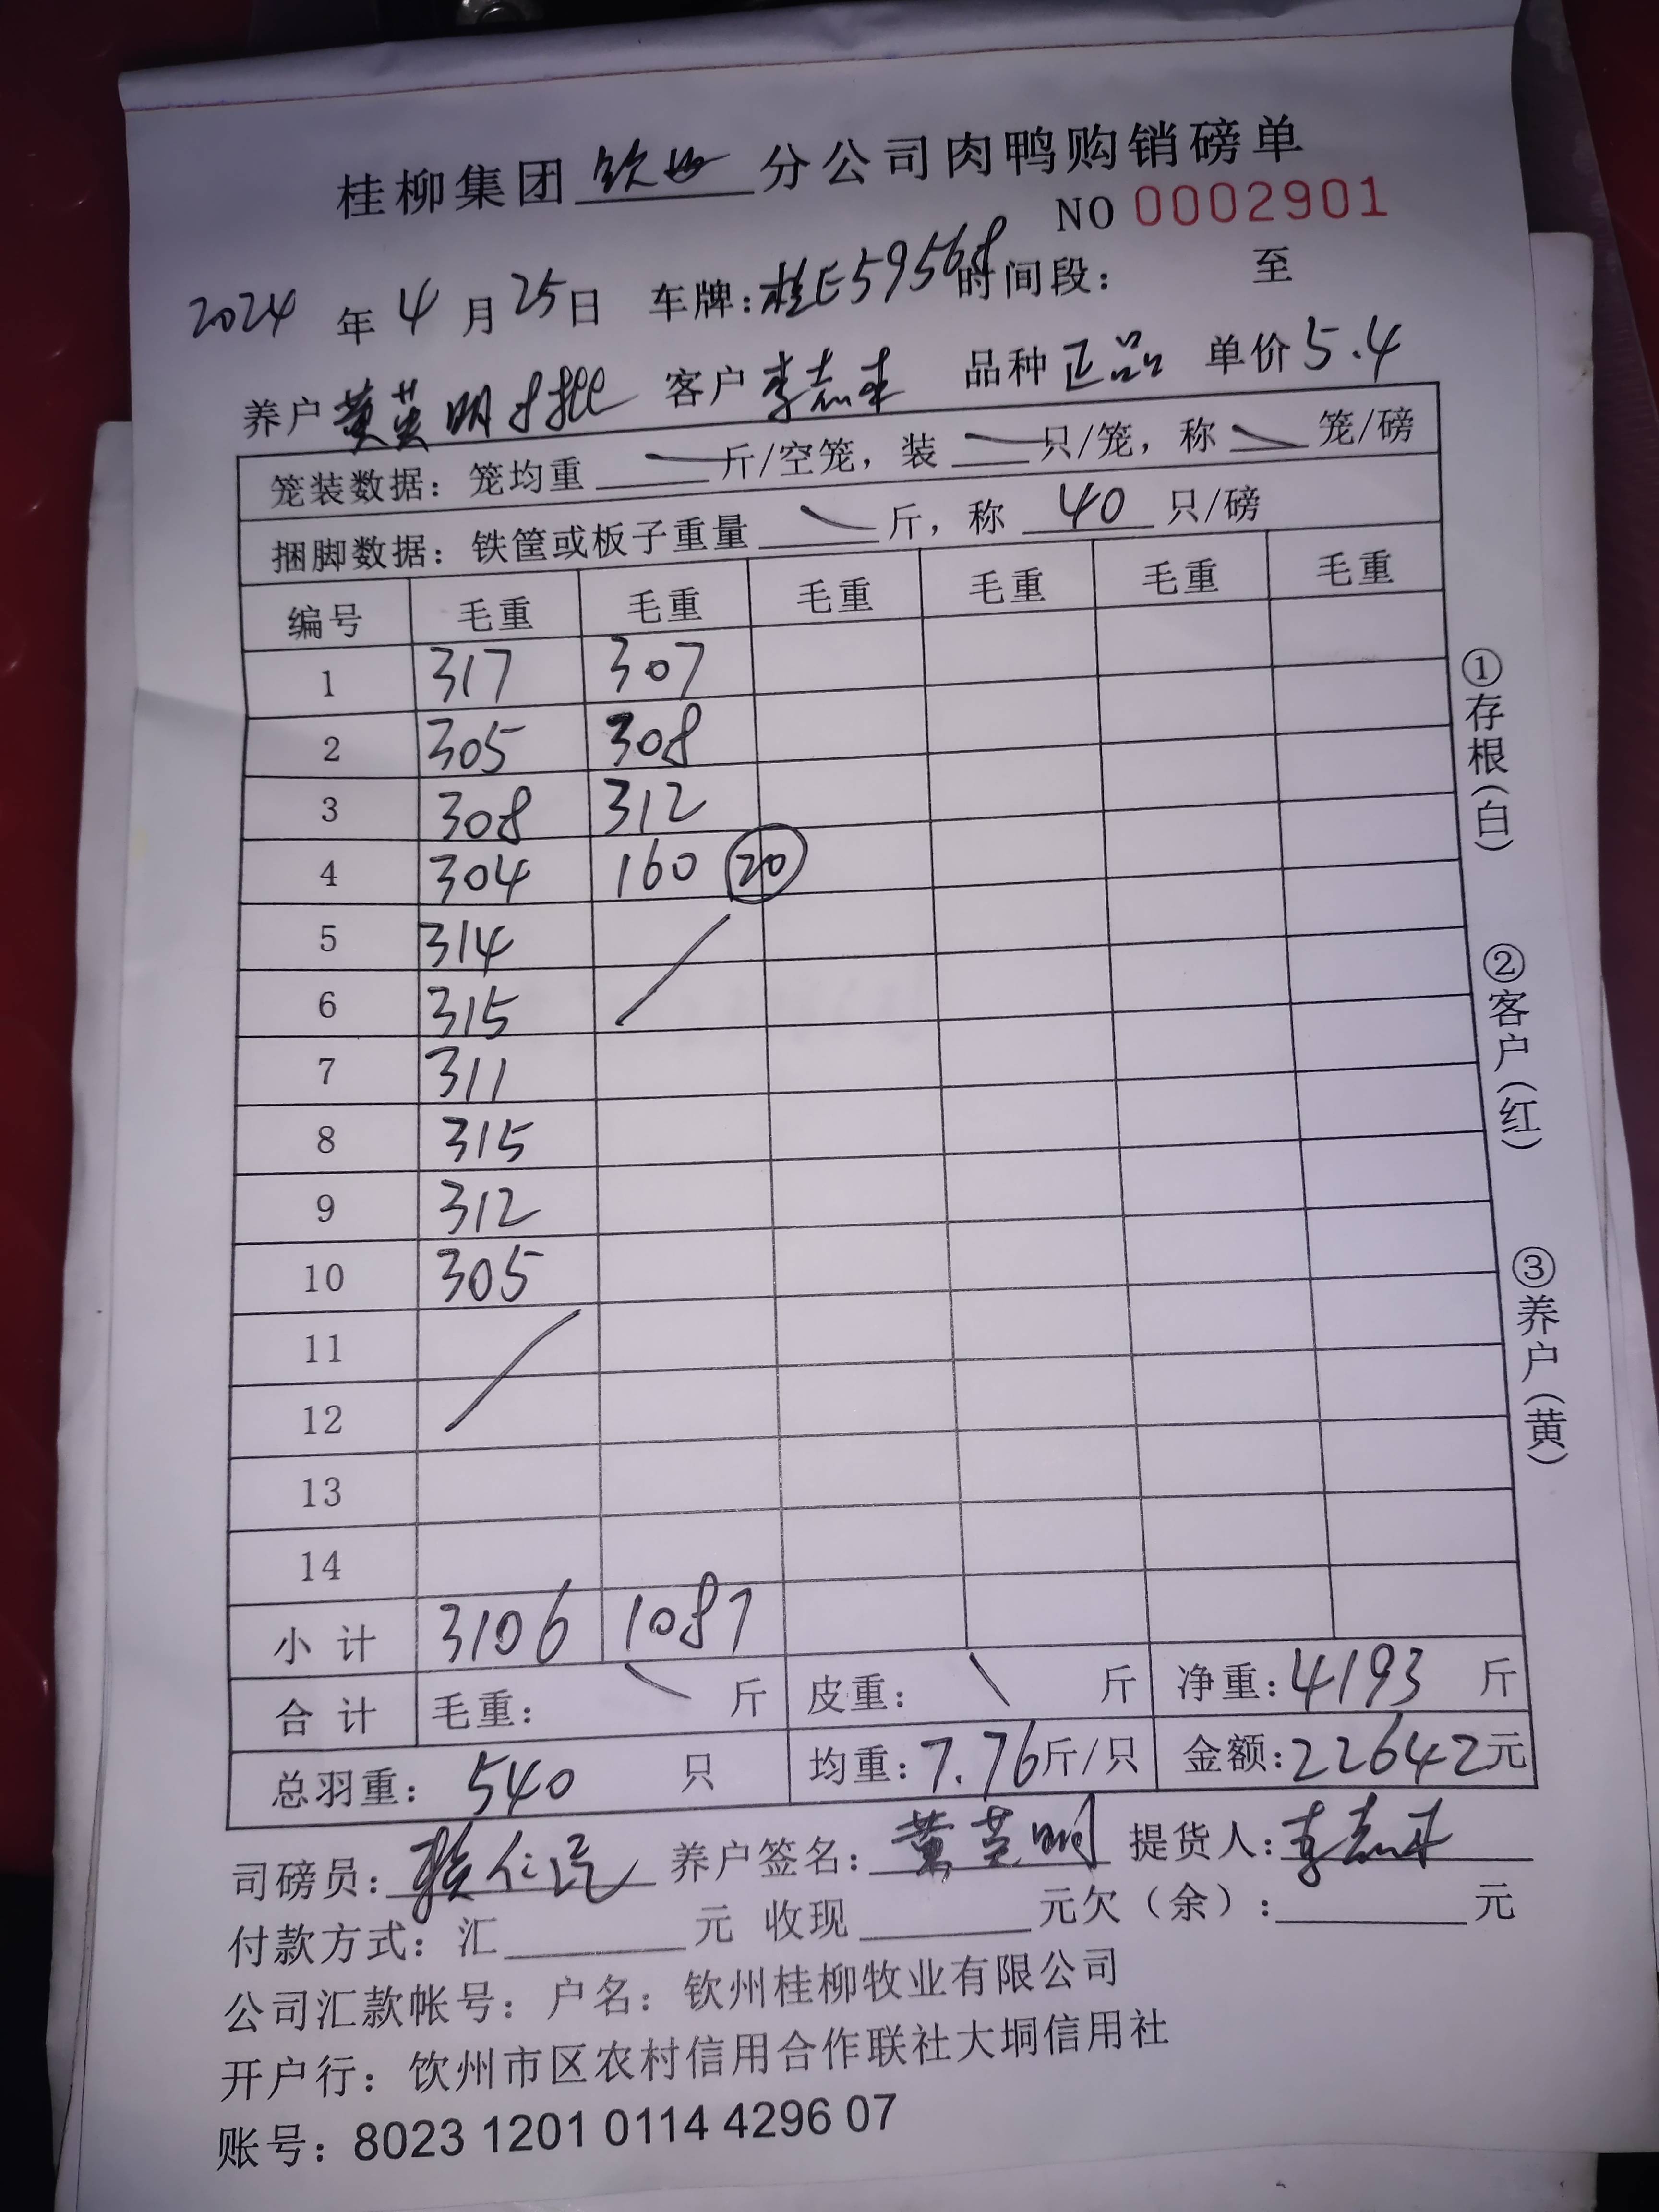 桂柳集团 钦州 分公司肉鸭购销磅单
NO 0002901
2024 年 4 月 25 日 车牌：桂E59568 时间段： 至
养户 黄英明 客户 李志来 品种 正品 单价 5.4
笼装数据：笼均重 斤/空笼，装 只/笼，称 笼/磅
捆脚数据：铁筐或板子重量 斤，称 40 只/磅
编号 毛重 毛重 毛重 毛重 毛重 毛重
1 317 307
2 305 308
3 308 312
4 304 160 20
5 314
6 315
7 311
8 315
9 312
10 305
11
12
13
14
小计 3106 1087
合计 毛重： 斤 皮重： 斤 净重：4193 斤
总羽重： 540 只 均重：7.76斤/只 金额：22642元
司磅员： 养户签名：黄英明 提货人：李志来
付款方式：汇 元 收现 元欠（余）： 元
公司汇款帐号：户名：钦州桂柳牧业有限公司
开户行：钦州市区农村信用合作联社大垌信用社
账号：8023 1201 0114 4296 07
①存根（白）
②客户（红）
③养户（黄）